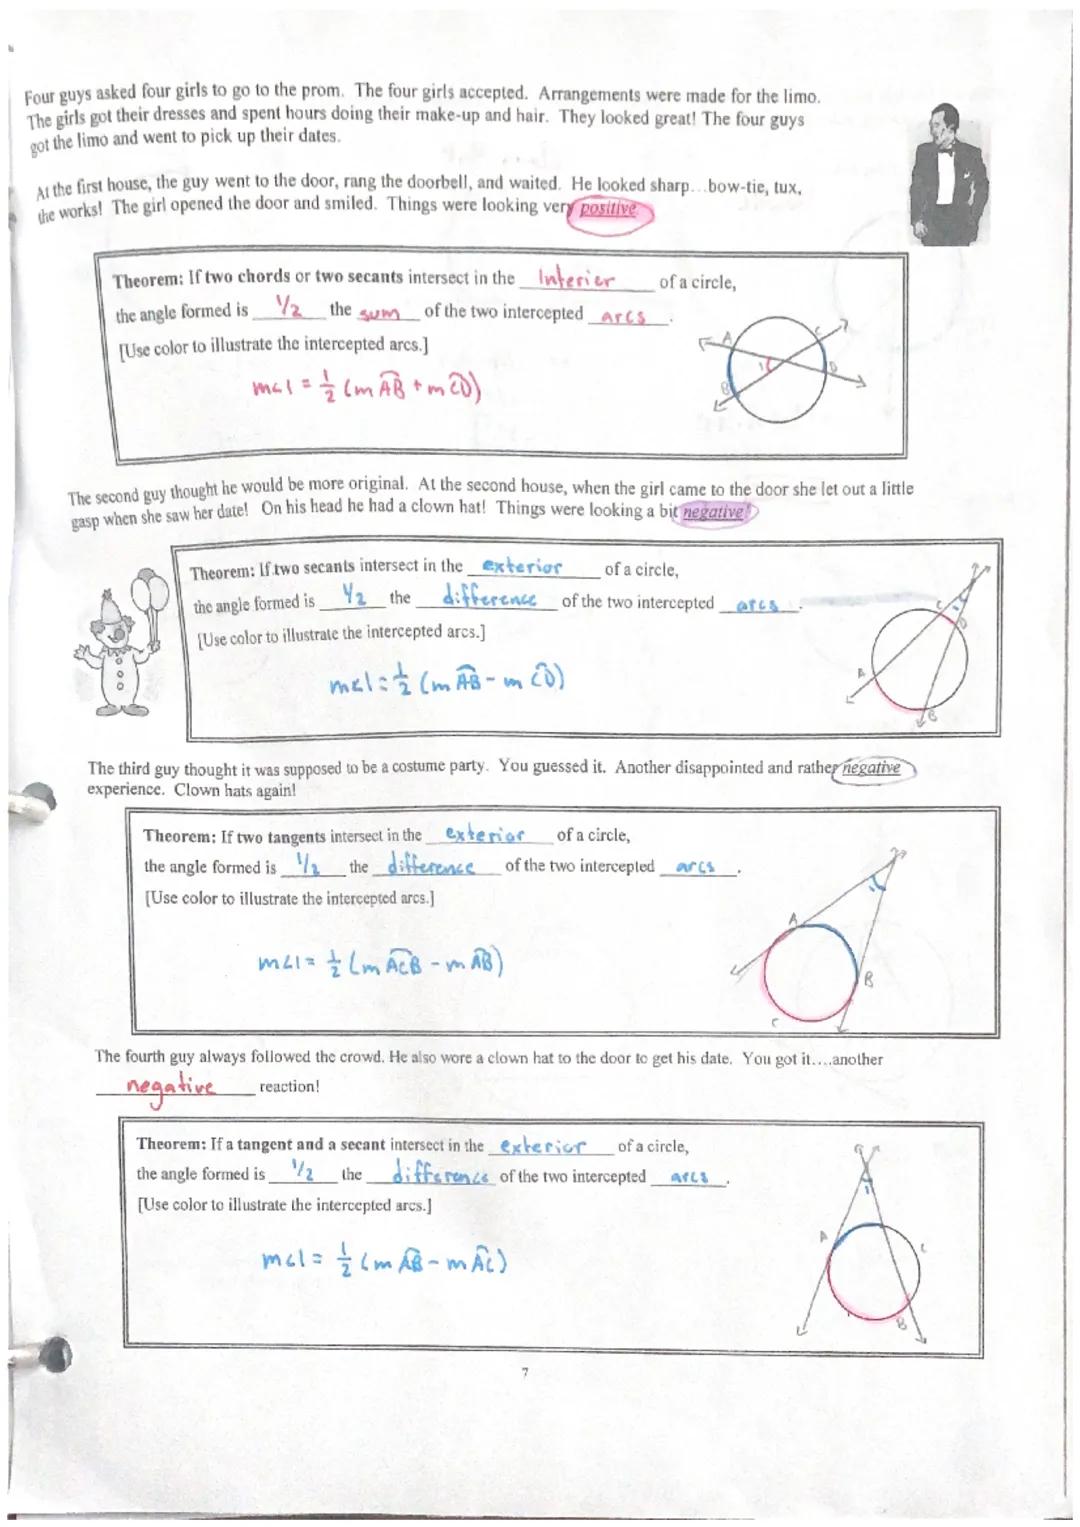 Four guys asked four girls to go to the prom. The four girls accepted. Arrangements were made for the limo.
The girls got their dresses and spent hours doing their make-up and hair. They looked great! The four guys
got the limo and went to pick up their dates.
At the first house, the guy went to the door, rang the doorbell, and waited. He looked sharp...bow-tie, tux,
the works! The girl opened the door and smiled. Things were looking very positive.
Theorem: If two chords or two secants intersect in the Interior of a circle,
the angle formed is 1/2 the sum of the two intercepted arcs.
[Use color to illustrate the intercepted arcs.]
A C 1 B D
m∠1 = 1/2 (m AB + m CD)
The second guy thought he would be more original. At the second house, when the girl came to the door she let out a little
gasp when she saw her date! On his head he had a clown hat! Things were looking a bit negative!
Theorem: If two secants intersect in the exterior of a circle,
the angle formed is 1/2 the difference of the two intercepted arcs.
[Use color to illustrate the intercepted arcs.]
C 1 D A B
m∠1 = 1/2 (m AB - m CD)
The third guy thought it was supposed to be a costume party. You guessed it. Another disappointed and rather negative
experience. Clown hats again!
Theorem: If two tangents intersect in the exterior of a circle,
the angle formed is 1/2 the difference of the two intercepted arcs.
[Use color to illustrate the intercepted arcs.]
1 A B C
m∠1 = 1/2 (m ACB - m AB)
The fourth guy always followed the crowd. He also wore a clown hat to the door to get his date. You got it....another
negative reaction!
Theorem: If a tangent and a secant intersect in the exterior of a circle,
the angle formed is 1/2 the difference of the two intercepted arcs.
[Use color to illustrate the intercepted arcs.]
1 A C B
m∠1 = 1/2 (m AB - m AC)
7